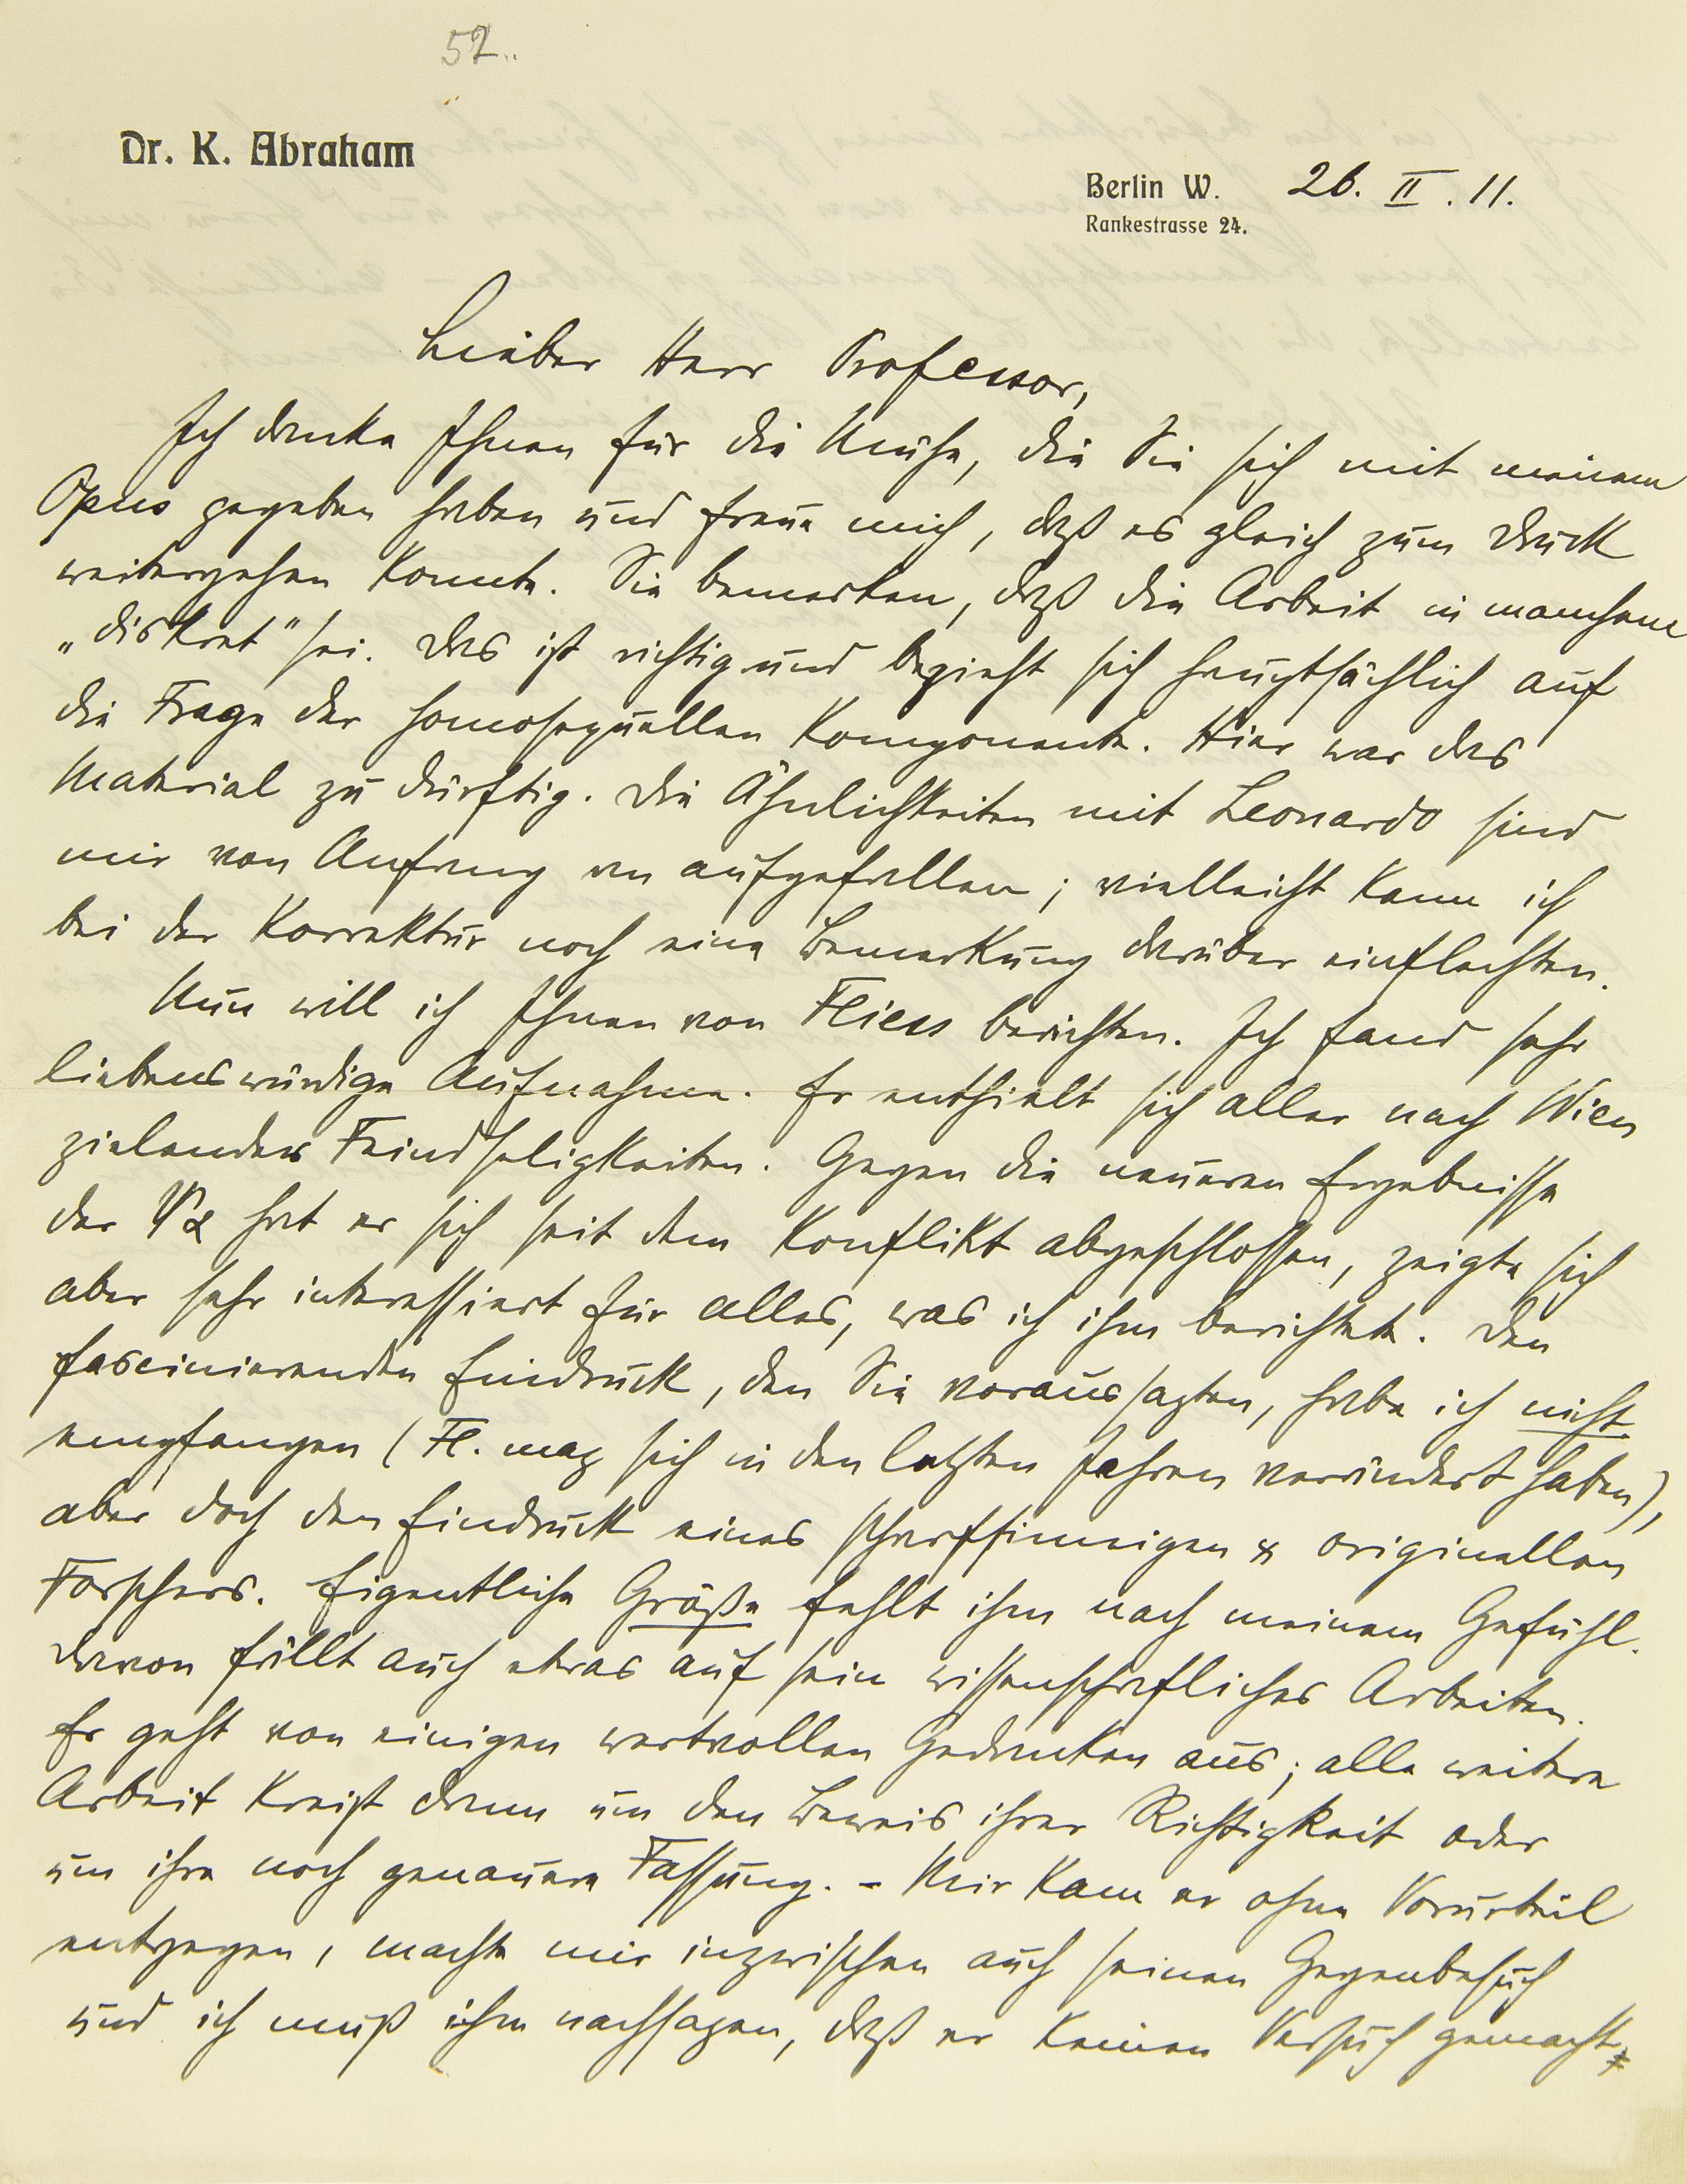 52.
Dr. K. Abraham
Berlin W. 26. II. 11.
Rankestrasse 24.
Lieber Herr Professor,
Ich danke Ihnen für die Mühe, die Sie sich mit meinem
Opus gegeben haben und freue mich, daß es gleich zum Druck
weitergehen konnte. Sie bemerken, daß die Arbeit in manchem
„diskret" sei. Das ist richtig und bezieht sich hauptsächlich auf
die Frage der homosexuellen Komponente. Hier war das
Material zu dürftig. Die Ähnlichkeiten mit Leonardo sind
mir von Anfang an aufgefallen; vielleicht kann ich
bei der Korrektur noch eine Bemerkung darüber einflechten.
Nun will ich Ihnen von Fliess berichten. Ich fand sehr
liebenswürdige Aufnahme. Er enthielt sich aller nach Wien
zielenden Feindseligkeiten. Gegen die neueren Ergebnisse
der Ψα hat er sich seit dem Konflikt abgeschlossen, zeigte sich
aber sehr interessiert für alles, was ich ihm berichtete. Den
fascinierenden Eindruck, den Sie voraussagten, habe ich nicht
empfangen (Fl. mag sich in den letzten Jahren verändert haben),
aber doch den Eindruck eines scharfsinnigen & originellen
Forschers. Eigentliche Größe fehlt ihm nach meinem Gefühl.
Davon fällt auch etwas auf sein wissenschaftliches Arbeiten.
Er geht von einigen wertvollen Gedanken aus; alle weitere
Arbeit kreist dann um den Beweis ihrer Richtigkeit oder
um ihre noch genauere Fassung. – Mir kam er ohne Vorurteil
entgegen, machte mir inzwischen auch seinen Gegenbesuch
und ich muß ihm nachsagen, daß er keinen Versuch gemacht